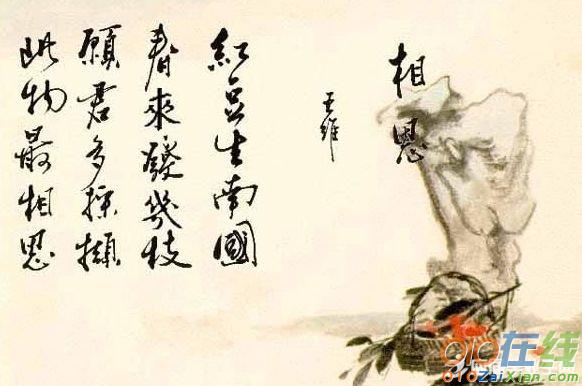 相思
王维
紅豆生南國
春來發幾枝
願君多採擷
此物最相思
010在线
010ZaiXian.com